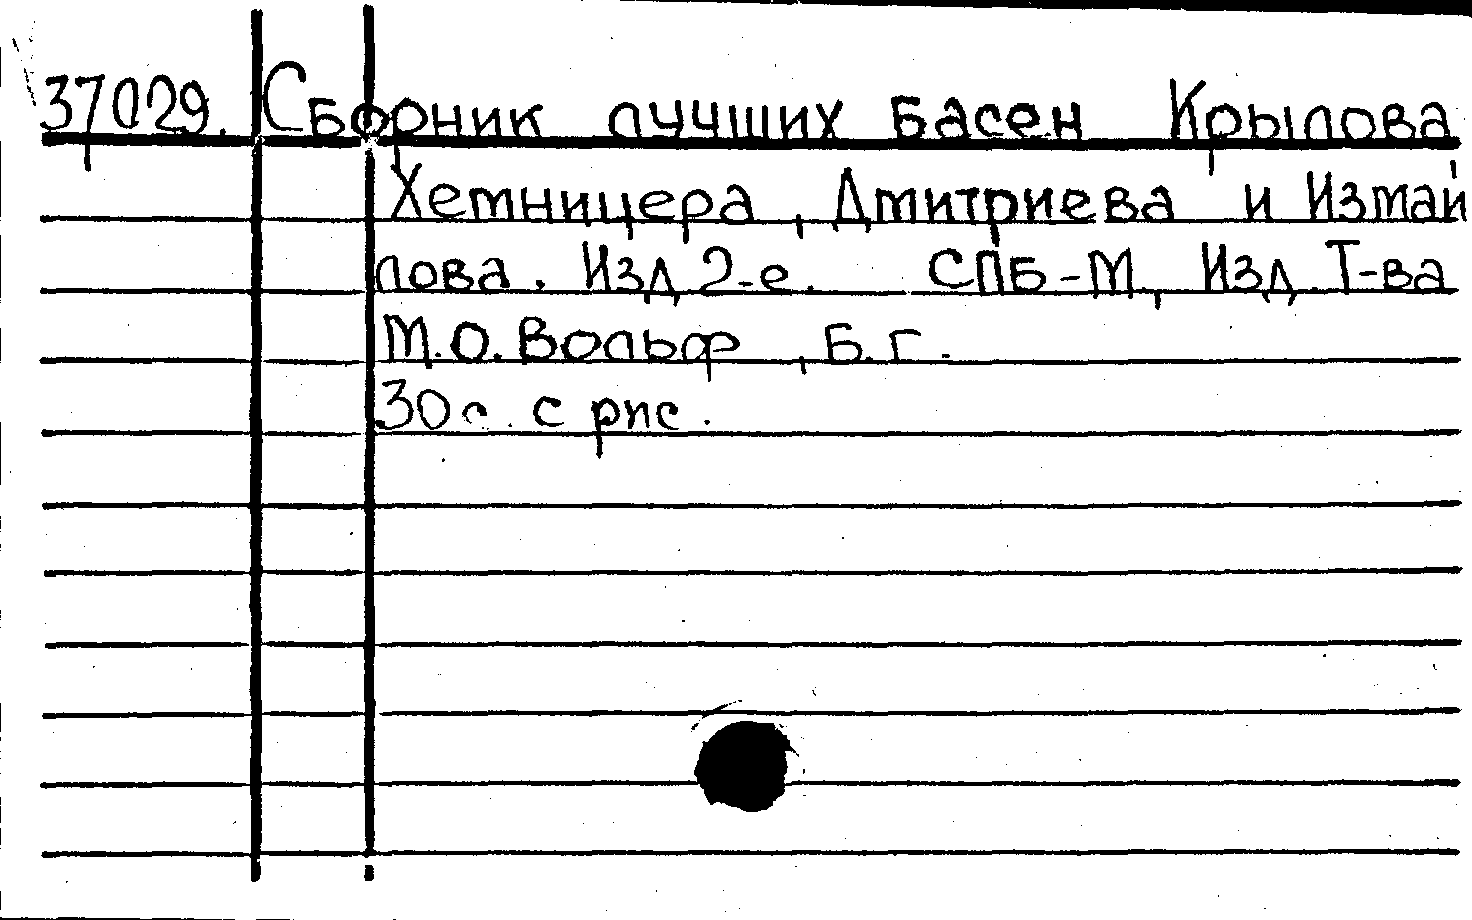 37029. Сборник лучших басен Крылова
Хемницера, Дмитриева и Измай
лова. Изд 2-е. СПБ-М, Изд. Т-ва
М.О. Вольф, Б.г.
30с. с рис.